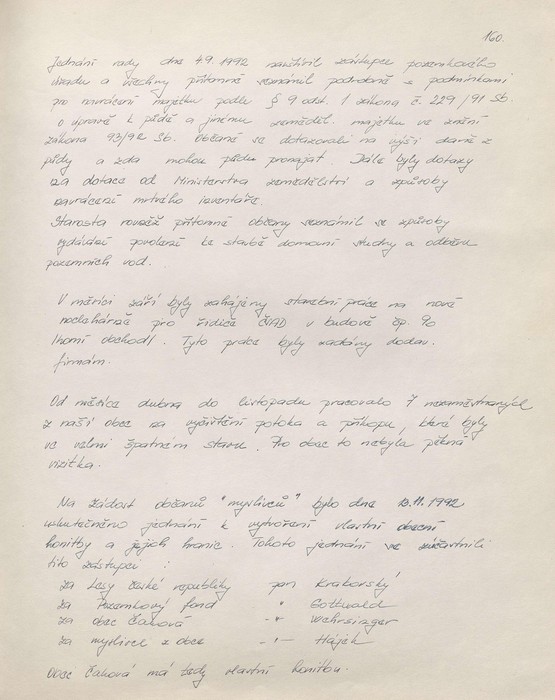 160.
Jednání rady dne 4.9.1992 navštívil zástupce pozemkového
úřadu a všechny přítomné seznámil podrobně s podmínkami
pro navrácení majetku podle § 9 odst. 1 zákona č. 229/91 Sb.
o úpravě k půdě a jinému zeměděl. majetku ve znění
zákona 93/92 Sb. Občané se dotazovali na výši daně z
půdy a zda mohou půdu pronajat. Dále byly dotazy
za dotace od Ministerstva zemědělství a způsoby
navrácení mrtvého inventáře.
Starosta rovněž přítomné občany seznámil se způsoby
vydávání povolení ke stavbě domovní studny a odběru
pozemních vod.
V měsíci září byly zahájeny stavební práce na nové
noclehárně pro řidiče ČSAD v budově čp. 90
horní obchod. Tyto práce byly zadány dodav.
firmám.
Od měsíce dubna do listopadu pracovalo 7 nezaměstnaných
z naší obce na vyčištění potoka a příkopu, které byly
ve velmi špatném stavu. Pro obec to nebyla pěkná
vizitka.
Na žádost občanů "myslivců" bylo dne 13.11.1992
uskutečněno jednání k vytvoření vlastní obecní
honitby a jejich hranic. Tohoto jednání se zúčastnili
tito zástupci :
za Lesy České republiky pan Krakovský
za Pozemkový fond " Gottwald
za obec Čaková -"- Wehrsinger
za myslivce z obce -"- Hájek
Obec Čaková má tedy vlastní honitbu.